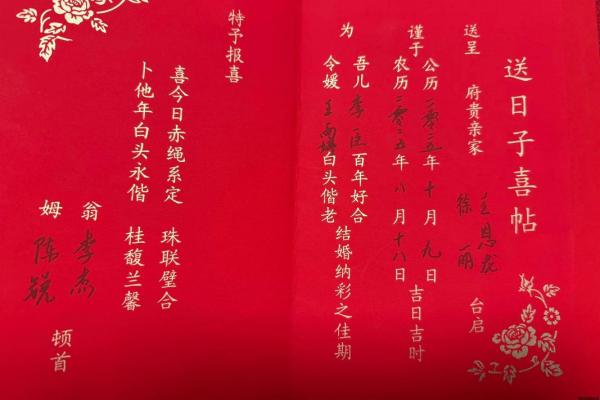 送日子喜帖
送呈 府贵亲家 王恩龙 徐丽 台启
谨于
公历二零二五年十月九日
农历二零二五年八月十八日
吉日吉时
为
吾儿李臣百年好合
令媛王雨 白头偕老
结婚纳彩之佳期
特予报喜
喜今日赤绳系定 珠联璧合
卜他年白头永偕 桂馥兰馨
翁 李杰
姆 陈锐
顿首